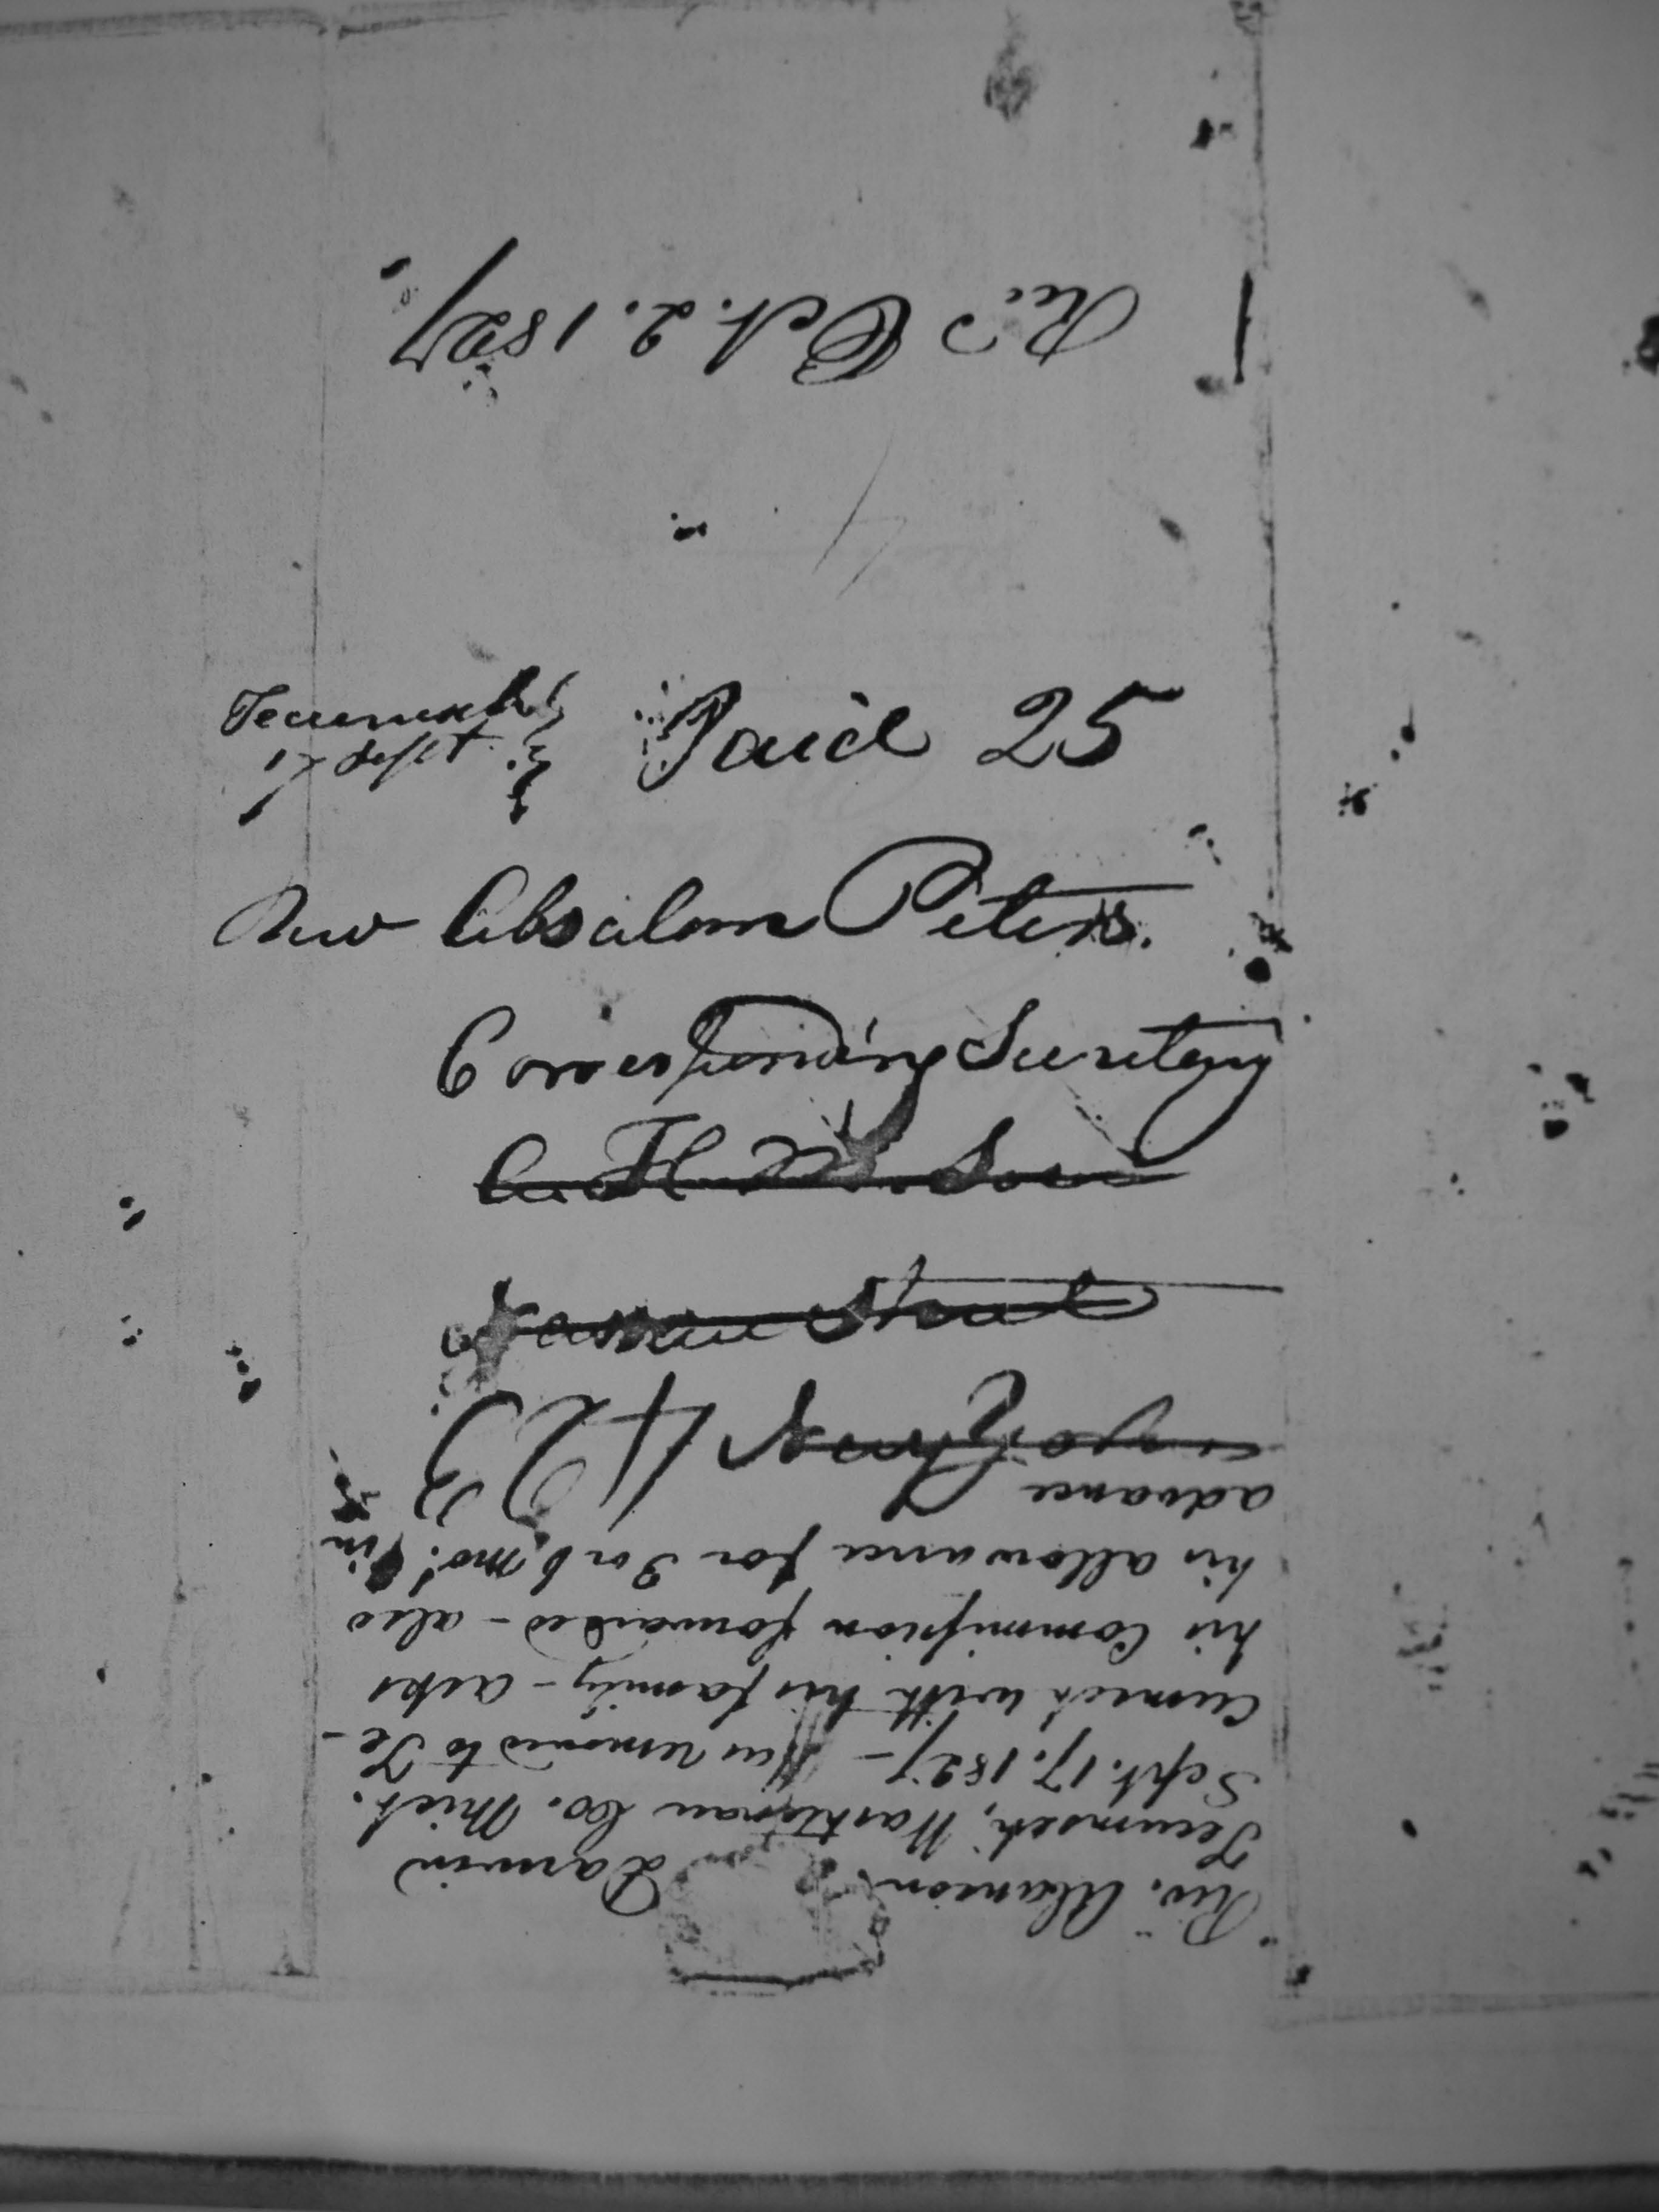 Tecumseh
17 Sept
Paid 25
Rev Absalom Peters.
Corresponding Secretary
Street
Recd Oct. 2. 1827
Rev. Alanson Darwin
Tecumseh, Washtenaw Co. Mich.
Sept. 17. 1827 - Has removed to Te-
cumseh with his family - asks
his Commission forwarded - also
his allowance for 3 or 6 mo. in
advance